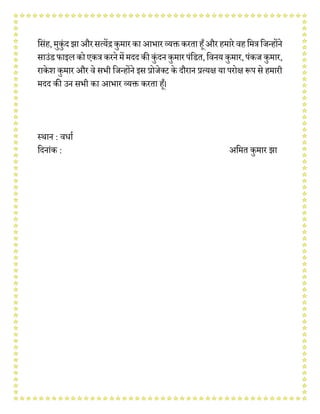 सिंह, मुकुंद झा और सत्येंद्र कुमार का आभार व्यक्त करता हूँ और हमारे वह मित्र जिन्होंने
साउंड फाइल को एकत्र करने में मदद की कुंदन कुमार पंडित, विनय कुमार, पंकज कुमार,
राकेश कुमार और वे सभी जिन्होंने इस प्रोजेक्ट के दौरान प्रत्यक्ष या परोक्ष रूप से हमारी
मदद की उन सभी का आभार व्यक्त करता हूँ।
स्थान : वर्धा
दिनांक : अमित कुमार झा